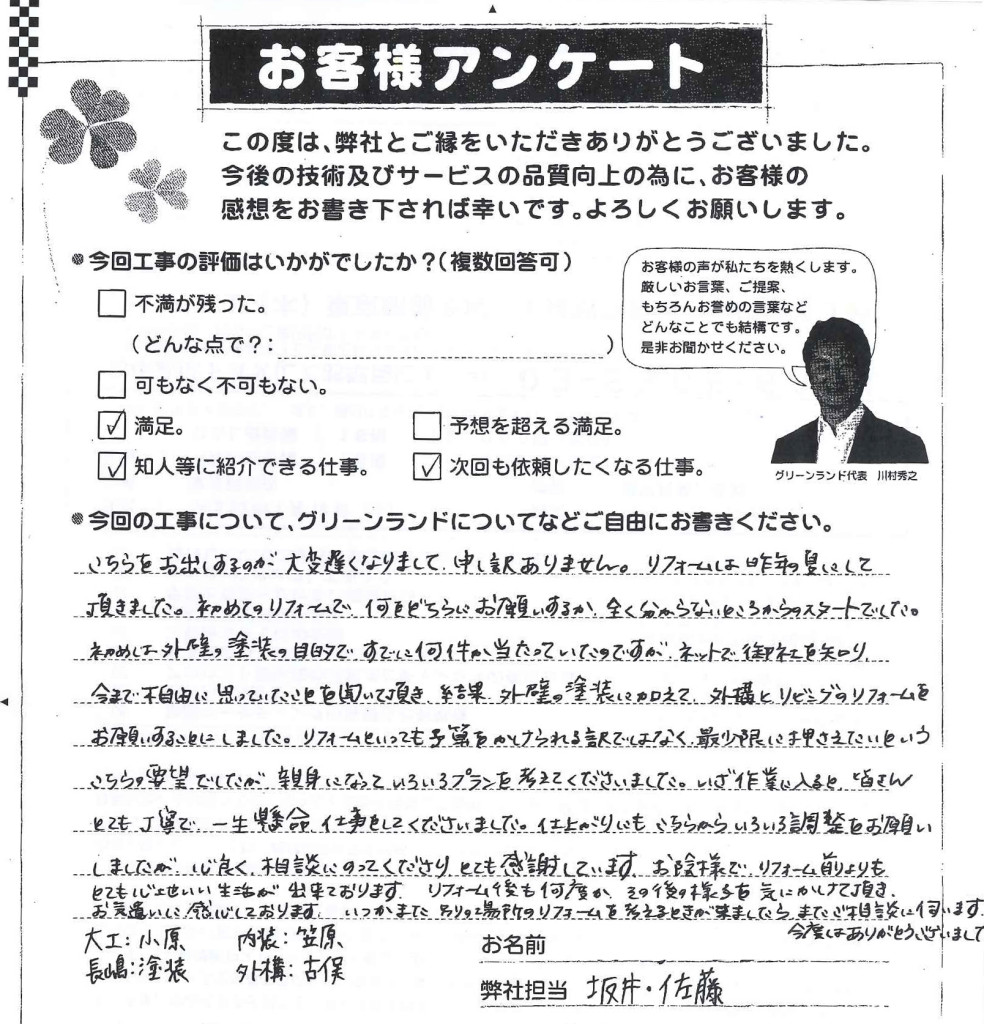 お客様アンケート
この度は、弊社とご縁をいただきありがとうございました。
今後の技術及びサービスの品質向上の為に、お客様の
感想をお書き下されば幸いです。よろしくお願いします。
今回工事の評価はいかがでしたか?(複数回答可)
お客様の声が私たちを熱くします。
厳しいお言葉、ご提案、
もちろんお誉めの言葉など
どんなことでも結構です。
是非お聞かせください。
不満が残った。
(どんな点で?: )
可もなく不可もない。
満足。
予想を超える満足。
知人等に紹介できる仕事。
次回も依頼したくなる仕事。
グリーンランド代表 川村秀之
今回の工事について、グリーンランドについてなどご自由にお書きください。
こちらをお出しするのが 大変遅くなりまして、申し訳ありません。リフォームは昨年の夏にして
頂きました。初めてのリフォームで、何をどちらにお願いするか、全く分からないところからのスタートでした。
初めは外壁の塗装の目的で、すでに何件か当たっていたのですが、ネットで御社を知り、
今まで不自由に思っていたことを聞いて頂き、結果、外壁の塗装に加えて、外構とリビングのリフォームを
お願いすることにしました。リフォームといっても予算をかけられる訳ではなく、最少限に押さえたいという
こちらの要望でしたが、親身になっていろいろプランを考えてくださいました。いざ作業に入ると、皆さん
とても丁寧で、一生懸命、仕事をしてくださいました。仕上がりにもこちらからいろいろ調整をお願い
しましたが、心良く、相談にのってくださり、とても感謝しています。お陰様で、リフォーム前よりも
とても心地いい生活が出来ております。リフォーム後も何度か、その後の様子を気にかけて頂き、
お気遣いに感心しております。いつかまた別の場所のリフォームを考えるときが来ましたら、またご相談に伺います。
今度はありがとうございまして
大工:小原 内装:笠原
長嶋:塗装 外構:古俣
お名前
弊社担当 坂井・佐藤